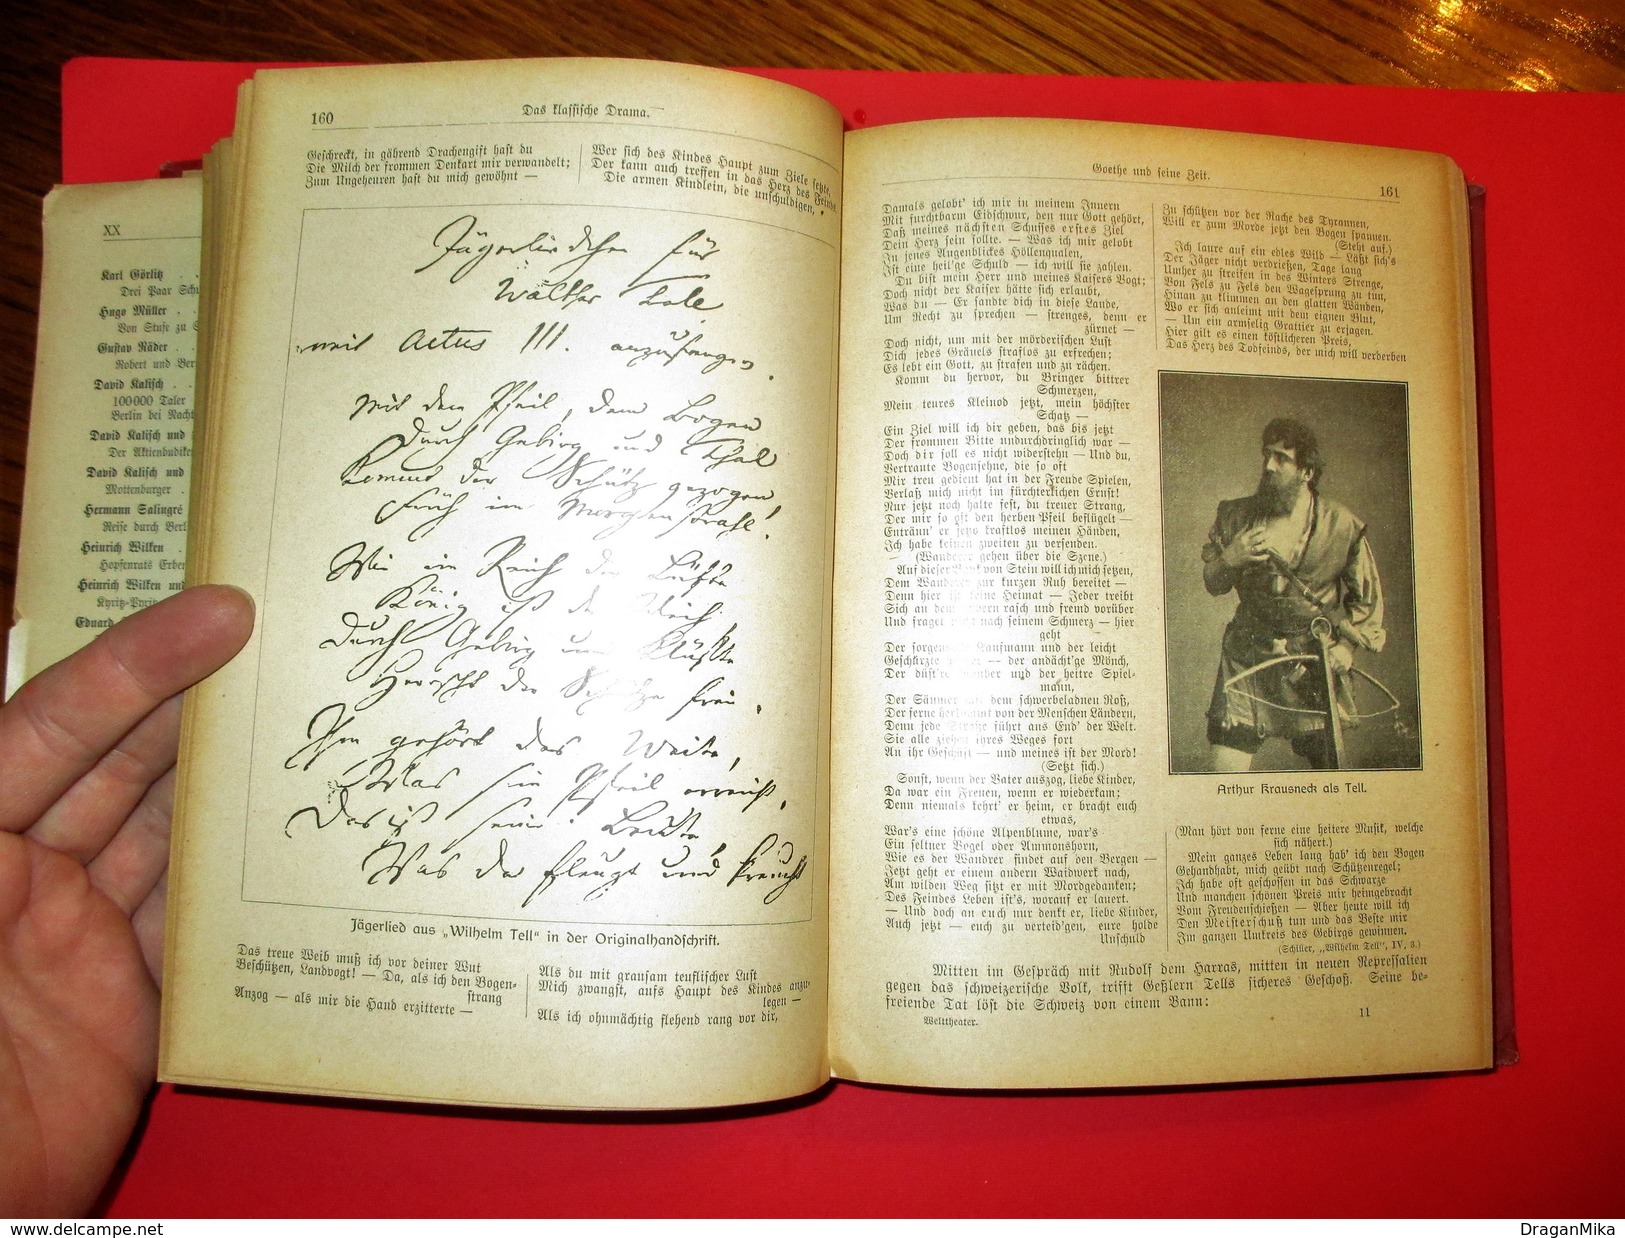 XX
Karl Görlitz . .
Drei Paar Schu
Hugo Müller . .
Von Stufe zu S
Gustav Räder . .
Robert und Ber
David Kalisch . .
100000 Taler
Berlin bei Nacht
David Kalisch und
Der Aktienbudike
David Kalisch und
Mottenburger .
Hermann Salingré
Reise durch Berl
Heinrich Wilken .
Hopfenrats Erben
Heinrich Wilken und
Kyritz-Pyritz
Eduard
160
Das klassische Drama.
Geschreckt, in gährend Drachengift hast du
Die Milch der frommen Denkart mir verwandelt;
Zum Ungeheuren hast du mich gewöhnt —
Wer sich des Kindes Haupt zum Ziele setzte,
Der kann auch treffen in das Herz des Feinds.
Die armen Kindlein, die unschuldigen,
Jägerliedchen für
Walther Tell
wird Actus III. anzufangen.
Mit dem Pfeil, dem Bogen
Durch Gebirg und Thal
Kommt der Schütz gezogen
Früh im Morgenstrahl!
Wie im Reich der Lüfte
König ist der Weih,
Durch Gebirg und Klüfte
Herrscht der Schütze frei.
Ihm gehört das Weite,
Was sein Pfeil erreicht,
Das ist seine Beute,
Was da fleugt und kreucht
Jägerlied aus „Wilhelm Tell“ in der Originalhandschrift.
Das treue Weib muß ich vor deiner Wut
Beschützen, Landvogt! — Da, als ich den Bogen-
strang
Anzog — als mir die Hand erzitterte —
Als du mit grausam teuflischer Lust
Mich zwangst, aufs Haupt des Kindes anzu-
legen —
Als ich ohnmächtig flehend rang vor dir,
Goethe und seine Zeit.
161
Damals gelobt' ich mir in meinem Innern
Mit furchtbarm Eidschwur, den nur Gott gehört,
Daß meines nächsten Schusses erstes Ziel
Dein Herz sein sollte. — Was ich mir gelobt
In jenes Augenblickes Höllenqualen,
Ist eine heil'ge Schuld — ich will sie zahlen.
Du bist mein Herr und meines Kaisers Vogt;
Doch nicht der Kaiser hätte sich erlaubt,
Was du — Er sandte dich in diese Lande,
Um Recht zu sprechen — strenges, denn er
zürnet —
Doch nicht, um mit der mörderischen Lust
Dich jedes Gräuels straflos zu erfrechen;
Es lebt ein Gott, zu strafen und zu rächen.
Komm du hervor, du Bringer bittrer
Schmerzen,
Mein teures Kleinod jetzt, mein höchster
Schatz —
Ein Ziel will ich dir geben, das bis jetzt
Der frommen Bitte undurchdringlich war —
Doch dir soll es nicht widerstehn — Und du,
Vertraute Bogensehne, die so oft
Mir treu gedient hat in der Freude Spielen,
Verlaß mich nicht im fürchterlichen Ernst!
Nur jetzt noch halte fest, du treuer Strang,
Der mir so oft den herben Pfeil beflügelt —
Entränn' er jetzo kraftlos meinen Händen,
Ich habe keinen zweiten zu versenden.
(Wanderer gehen über die Szene.)
Auf dieser Bank von Stein will ich mich setzen,
Dem Wanderer zur kurzen Ruh bereitet —
Denn hier ist keine Heimat — Jeder treibt
Sich an dem andern rasch und fremd vorüber
Und fraget nicht nach seinem Schmerz — hier
geht
Der sorgenvolle Kaufmann und der leicht
Geschürzte Pilger — der andächt'ge Mönch,
Der düst're Räuber und der heitre Spiel-
mann,
Der Säumer mit dem schwerbeladnen Roß,
Der ferne herkommt von der Menschen Ländern,
Denn jede Straße führt ans End' der Welt.
Sie alle ziehen ihres Weges fort
An ihr Geschäft — und meines ist der Mord!
(Setzt sich.)
Sonst, wenn der Vater auszog, liebe Kinder,
Da war ein Freuen, wenn er wiederkam;
Denn niemals kehrt' er heim, er bracht euch
etwas,
War's eine schöne Alpenblume, war's
Ein seltner Vogel oder Ammonshorn,
Wie es der Wandrer findet auf den Bergen —
Jetzt geht er einem andern Waidwerk nach,
Am wilden Weg sitzt er mit Mordgedanken;
Des Feindes Leben ist's, worauf er lauert.
— Und doch an euch nur denkt er, liebe Kinder,
Auch jetzt — euch zu verteid'gen, eure holde
Unschuld
Zu schützen vor der Rache des Tyrannen,
Will er zum Morde jetzt den Bogen spannen.
(Steht auf.)
Ich laure auf ein edles Wild — Läßt sich's
Der Jäger nicht verdrießen, Tage lang
Umher zu streifen in des Winters Strenge,
Von Fels zu Fels den Wagesprung zu tun,
Hinan zu klimmen an den glatten Wänden,
Wo er sich anleimt mit dem eignen Blut,
— Um ein armselig Grattier zu erjagen.
Hier gilt es einen köstlicheren Preis,
Das Herz des Todfeinds, der mich will verderben
Arthur Krausneck als Tell.
(Man hört von ferne eine heitere Musik, welche
sich nähert.)
Mein ganzes Leben lang hab' ich den Bogen
Gehandhabt, mich geübt nach Schützenregel;
Ich habe oft geschossen in das Schwarze
Und manchen schönen Preis mir heimgebracht
Vom Freudenschießen — Aber heute will ich
Den Meisterschuß tun und das Beste mir
Im ganzen Umkreis des Gebirgs gewinnen.
(Schiller, „Wilhelm Tell“, IV, 3.)
Mitten im Gespräch mit Rudolf dem Harras, mitten in neuen Repressalien
gegen das schweizerische Volk, trifft Geßlern Tells sicheres Geschoß. Seine be-
freiende Tat löst die Schweiz von einem Bann:
Welttheater.
11
www.delcampe.net
DraganMika